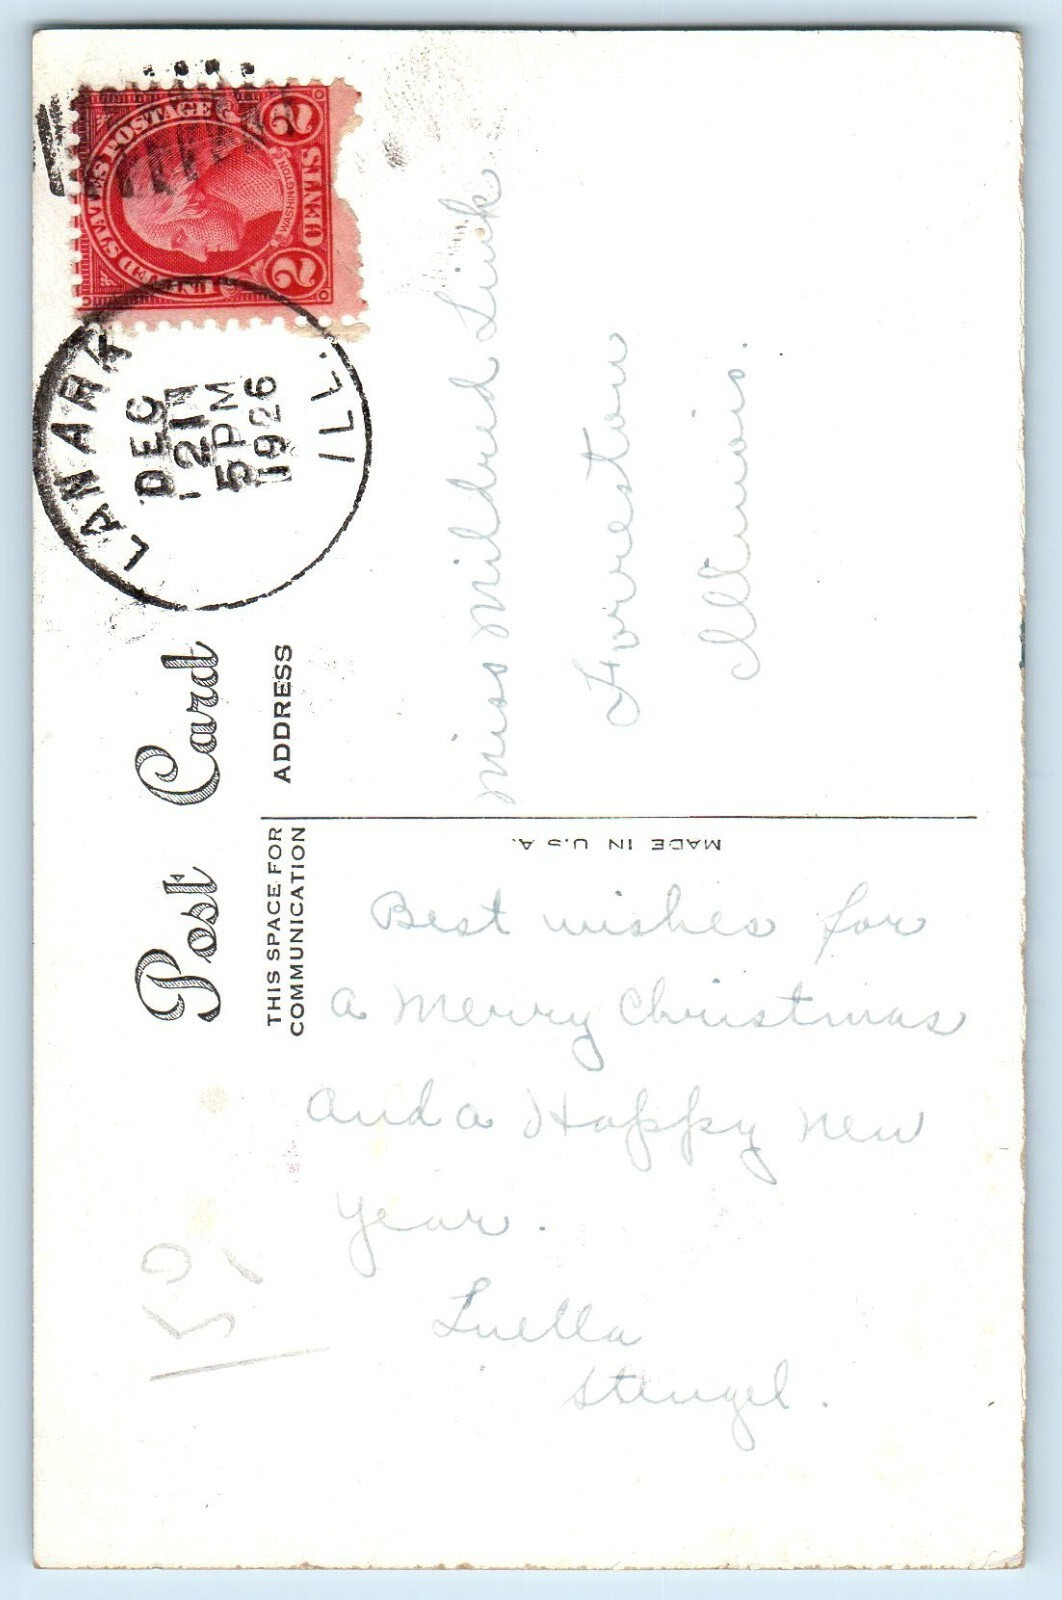 UNITED STATES POSTAGE
WASHINGTON
2 CENTS 2
LANARK
DEC 21
5 PM
1926
ILL.
Post Card
THIS SPACE FOR
COMMUNICATION
ADDRESS
Miss Mildred Linck
Forreston
Illinois.
MADE IN U.S.A.
Best wishes for
a Merry Christmas
and a Happy New
Year.
Luella
Stengel.